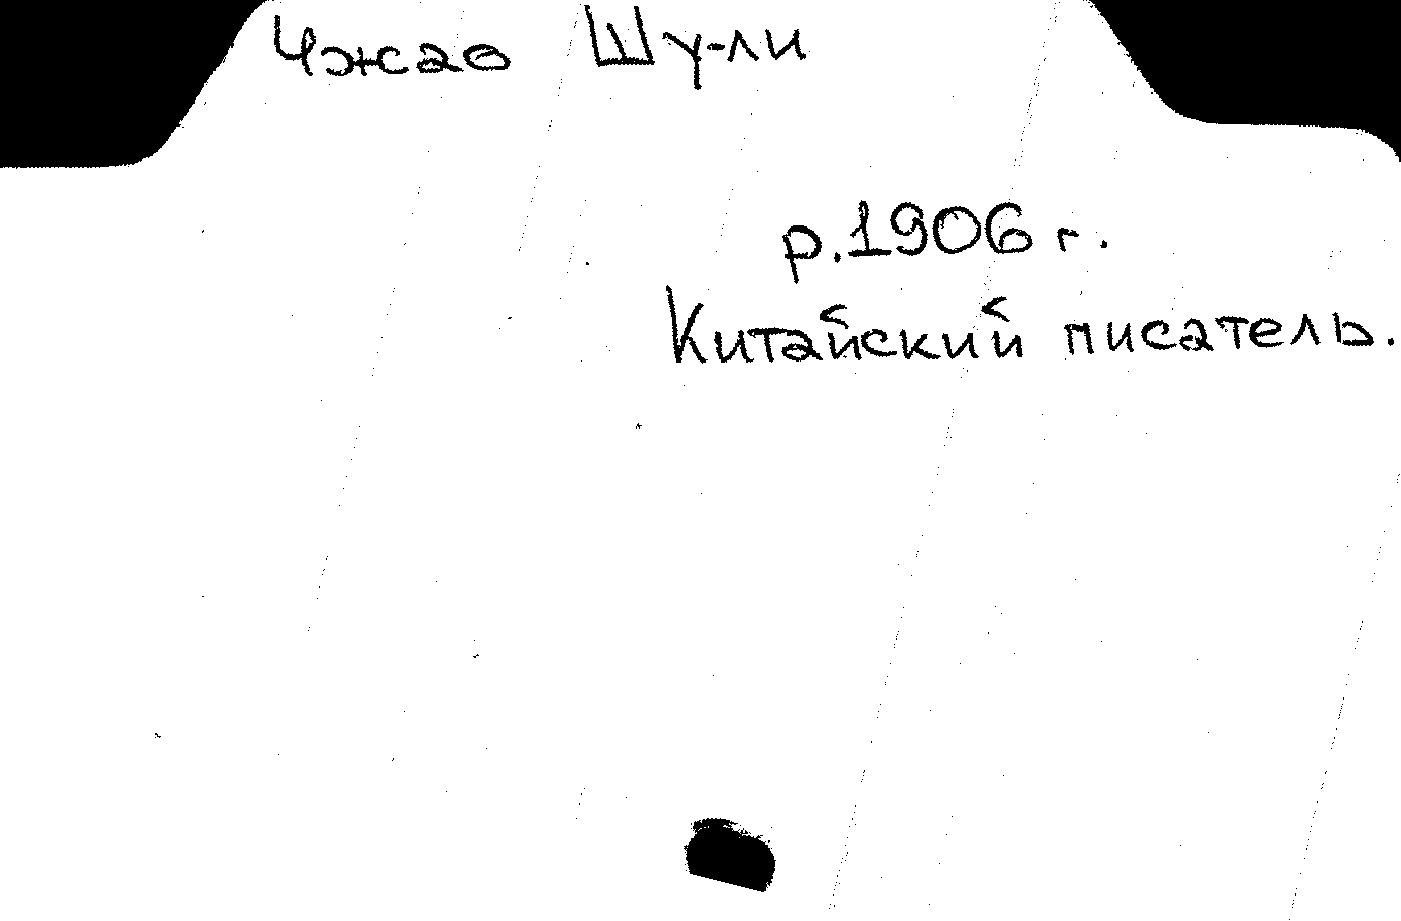 Чжао Шу-ли
р. 1906 г.
Китайский писатель.